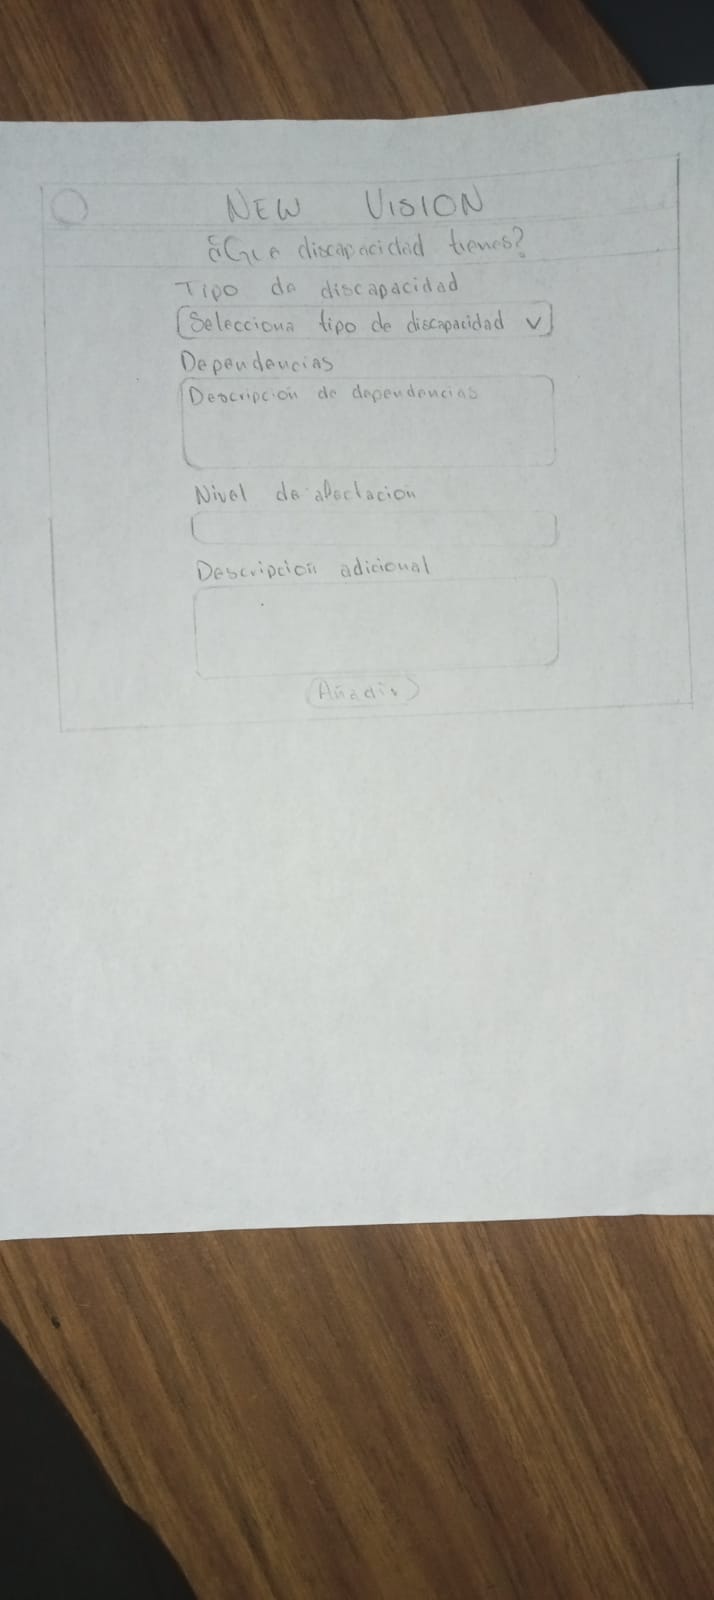 NEW VISION
¿Que discapacidad tienes?
Tipo de discapacidad
Selecciona tipo de discapacidad
Dependencias
Descripcion de dependencias
Nivel de afectacion
Descripcion adicional
Añadir